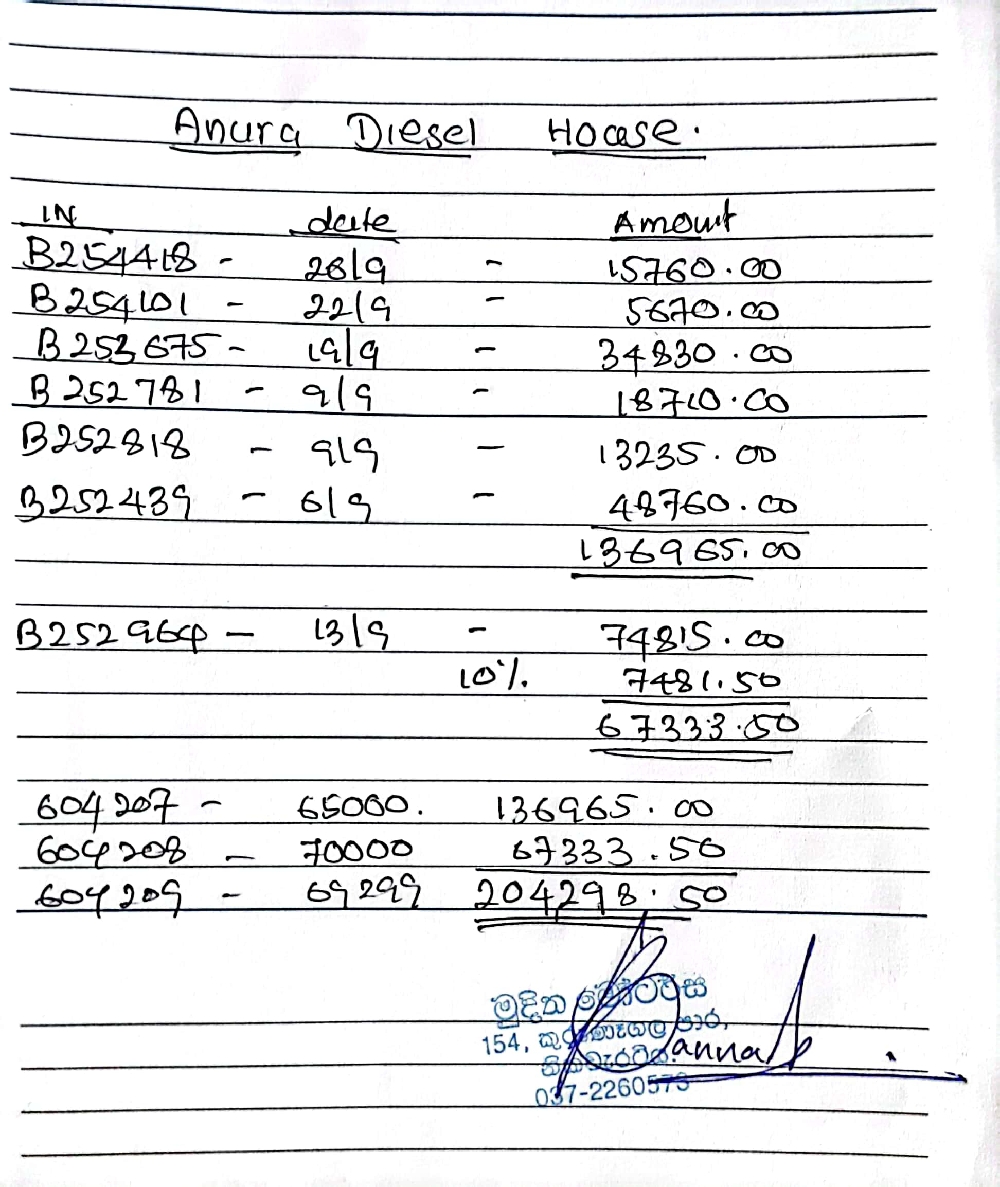 Anura Diesel House.
IN date Amount
B254418 - 28/9 - 15760.00
B254101 - 22/9 - 5670.00
B253675 - 19/9 - 34830.00
B252781 - 9/9 - 18710.00
B252818 - 9/9 - 13235.00
B252439 - 6/9 - 48760.00
136965.00
B252964 - 13/9 - 74815.00
10% 7481.50
67333.50
604207 - 65000. 136965.00
604208 - 70000 67333.50
604209 - 69299 204298.50
මුදිත මෝටර්ස්
154, කුරුණෑගල පාර,
නිකවැරටිය.
037-2260573